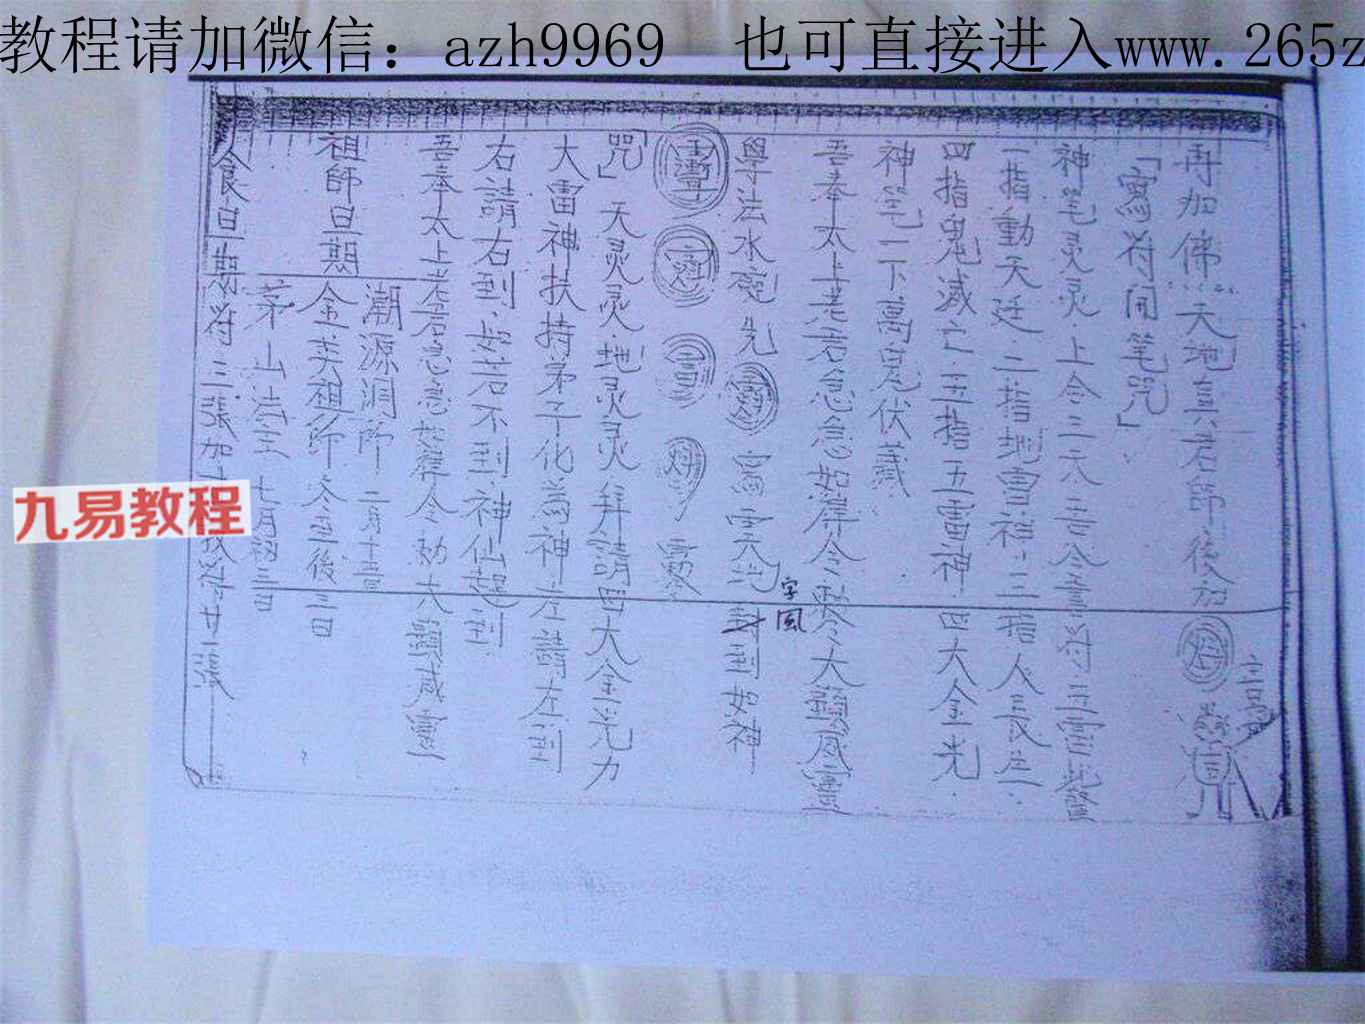 教程请加微信：azh9969 也可直接进入www.265z
九易教程
再加佛天地真君師後加
「寫符開笔咒」
神笔灵灵上令三六吉令畫符三雷
一指動天廷二指地曹福三指人長生
四指鬼滅亡五指五雷神四大金光
神笔一下萬鬼伏藏
吾奉太上老君急急如律令 大顯威靈
學法水碗先 寫 天地 到如神
字風
咒」天灵灵地灵灵拜請四大金光力
大雷神扶持弟子化為神左請左到
右請右到如若不到神仙起到
吾奉太上老君急急如律令勅大顯威靈
祖師旦期
潮源洞師 二月十五日
金英祖師冬至後三日
茅山法主 七月初三日
食旦期符三張加 符廿一張